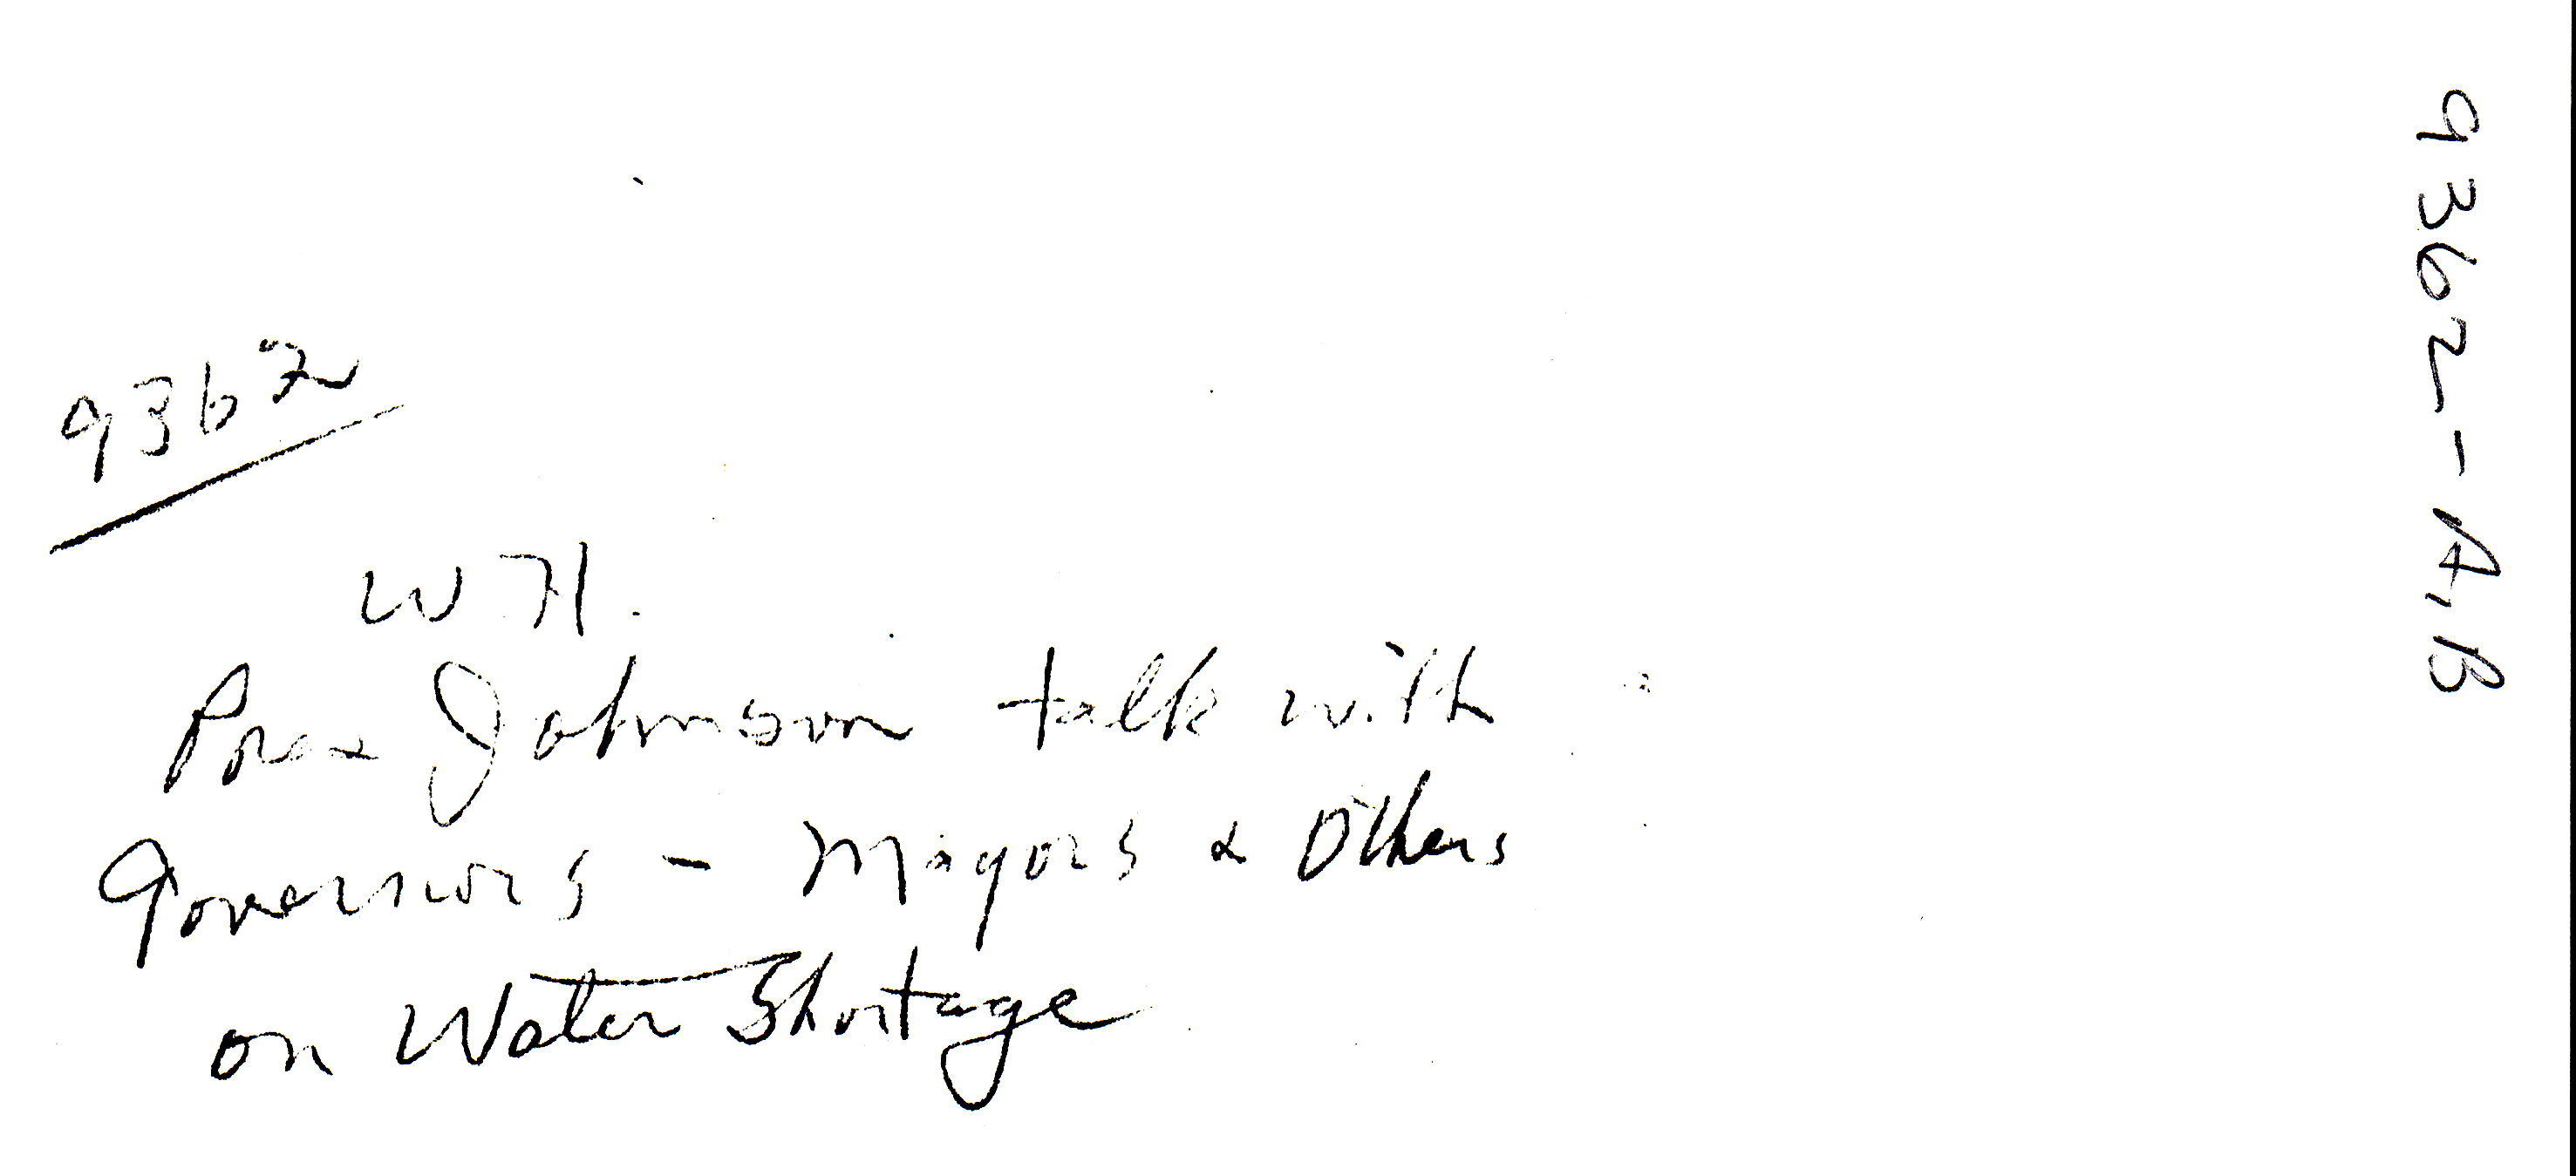 9362
W H.
Pres Johnson talk with
Governors - Mayors & Others
on Water Shortage
9362-A,B